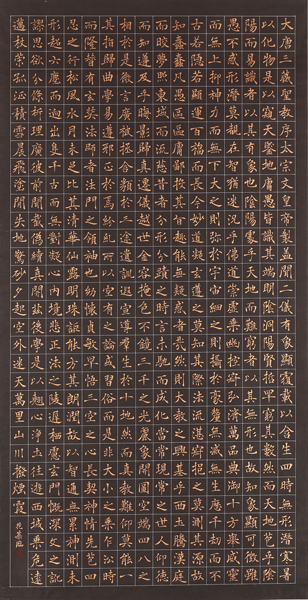 大唐三藏聖教序太宗文皇帝製蓋聞二儀有象顯覆載以含生四時無形潛寒暑
以化物是以窺天鑒地庸愚皆識其端明陰洞陽賢哲罕窮其數然而天地苞乎陰
陽而易識者以其有象也陰陽處乎天地而難窮者以其無形也故知象顯可徵雖
愚不惑形潛莫覩在智猶迷況乎佛道崇虛乘幽控寂弘濟萬品典御十方舉威靈
而無上抑神力而無下大之則彌於宇宙細之則攝於毫釐無滅無生歷千劫而不
古若隱若顯運百福而長今妙道凝玄遵之莫知其際法流湛寂挹之莫測其源故
知蠢蠢凡愚區區庸鄙投其旨趣能無疑惑者哉然則大教之興基乎西土騰漢庭
而皎夢照東域而流慈昔者分形分蹟之時言未馳而成化當常現常之世人仰德
而知遵及乎晦影歸真遷儀越世金容掩色不鏡三千之光麗象開圖空端四八之
相於是微言廣被拯含類於三途遺訓遐宣導羣生於十地然而真教難仰莫能一
其指歸曲學易遵邪正於焉紛糾所以空有之論或習俗而是非大小之乘乍沿時
而隆替有玄奘法師者法門之領袖也幼懷貞敏早悟三空之心長契神情先苞四
忍之行松風水月未足比其清華仙露明珠詎能方其朗潤故以智通無累神測未
形超六塵而迥出隻千古而無對凝心內境悲正法之陵遲栖慮玄門慨深文之訛
謬思欲分條析理廣彼前聞截偽續真開茲後學是以翹心淨土往遊西域乘危遠
邁杖策孤征積雪晨飛途閒失地驚砂夕起空外迷天萬里山川撥煙霞